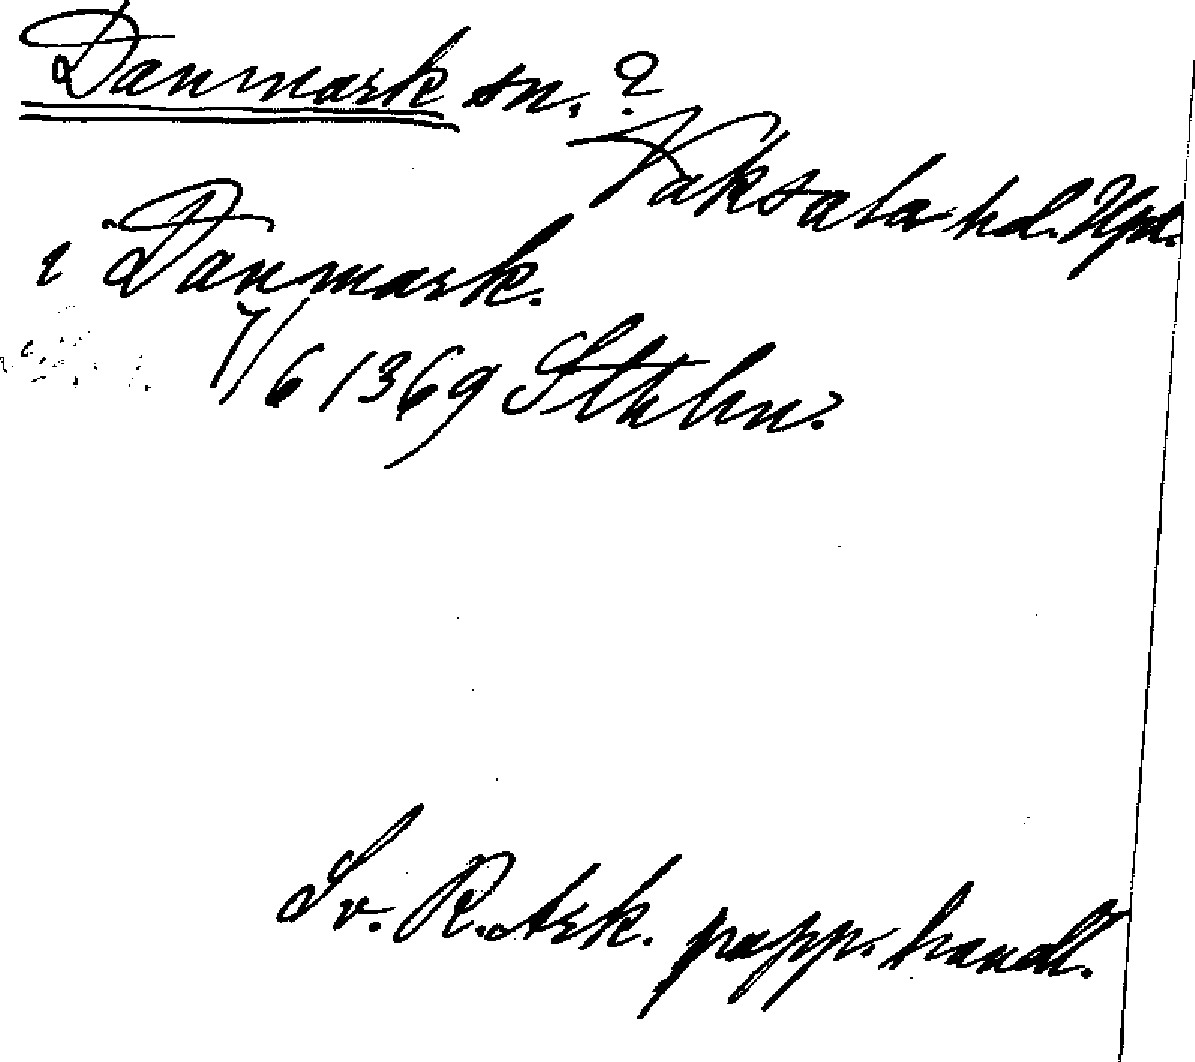 Danmark sn. ?
Vaksala hd. Upl.
i Danmark.
7/6 1369 Sthlm.
Sv. R. Ark. papp. handl.